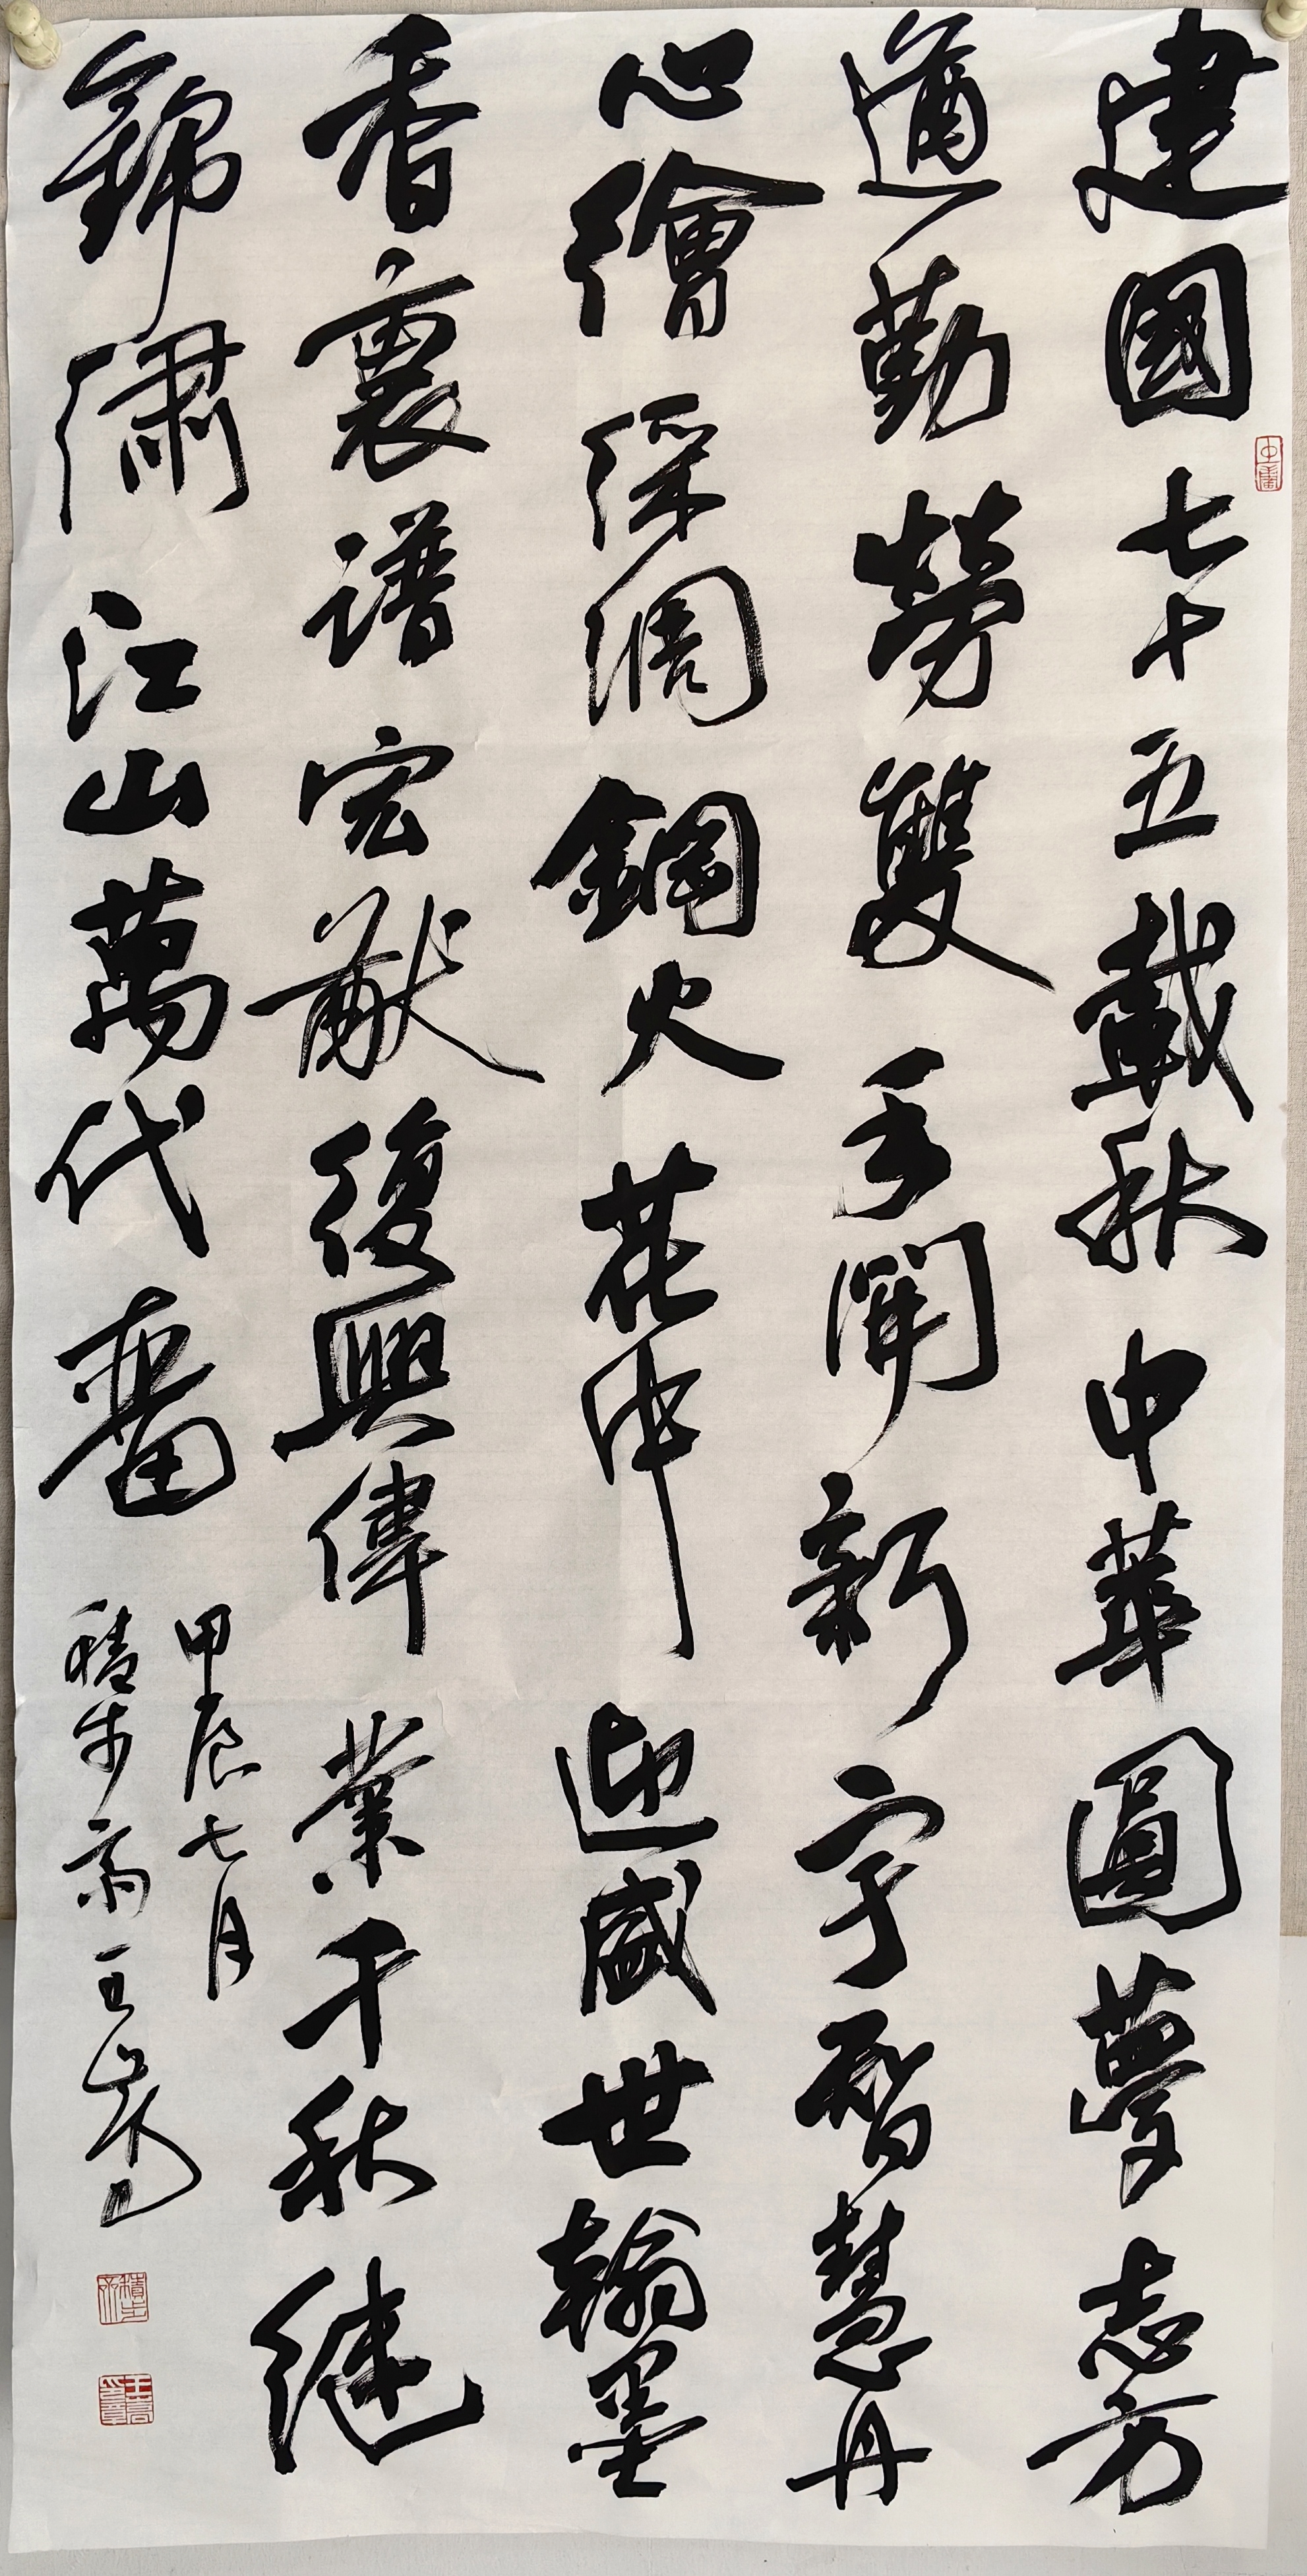 建國七十五載秋中華圓夢志方
遒勤勞雙手開新宇智慧丹
心繪綵綢鋼火花中迎盛世翰墨
香裏譜宏猷復興偉業千秋继
錦繡江山萬代畱
甲辰七月
積步齋王